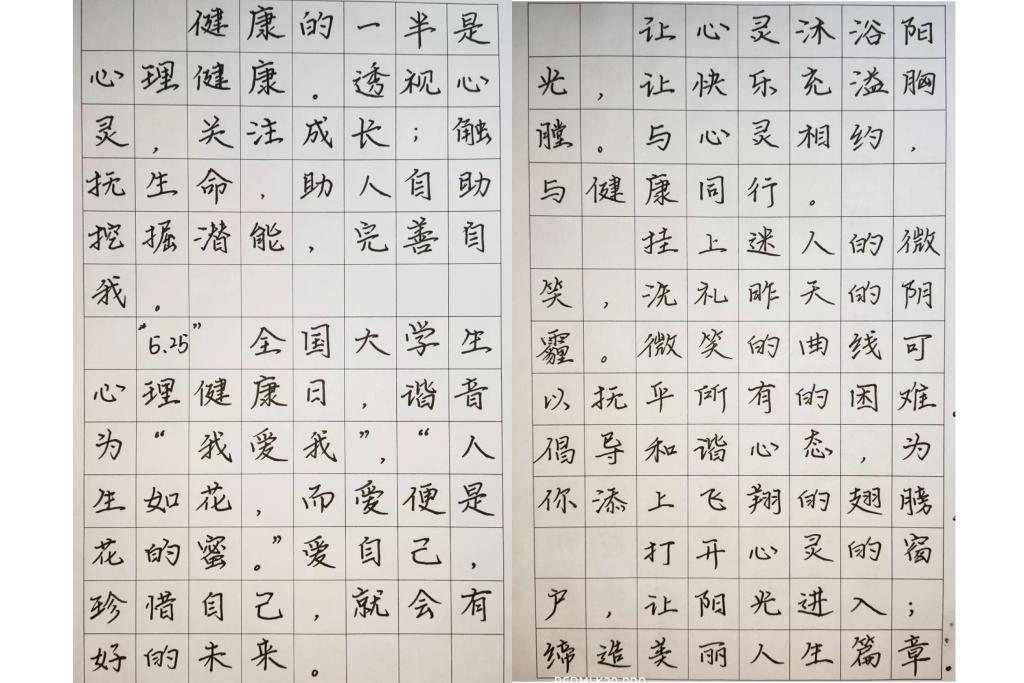 健康的一半是
心理健康。透视心
灵，关注成长；触
抚生命，助人自助
挖掘潜能，完善自
我。
“5.25”全国大学生
心理健康日，谐音
为“我爱我”，“人
生如花，而爱便是
花的蜜。”爱自己，
珍惜自己，就会有
好的未来。
让心灵沐浴阳
光，让快乐充溢胸
膛。与心灵相约，
与健康同行。
挂上迷人的微
笑，洗礼昨天的阴
霾。微笑的曲线可
以抚平所有的困难。
倡导和谐心态，为
你添上飞翔的翅膀。
打开心灵的窗
户，让阳光进入；
缔造美丽人生篇章。